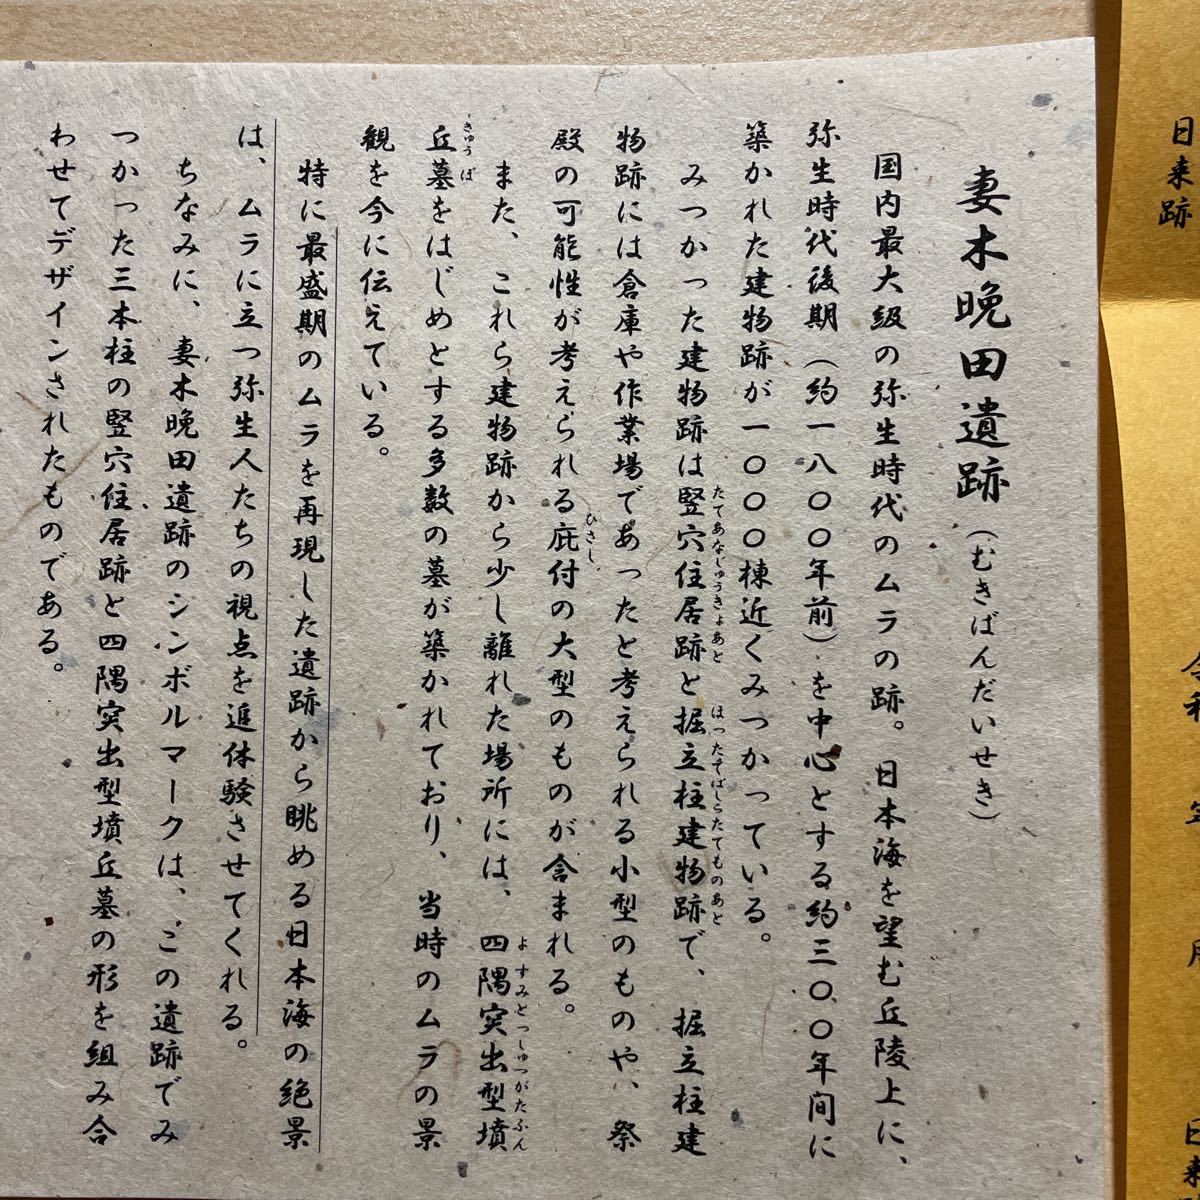 妻木晩田遺跡（むきばんだいせき）
国内最大級の弥生時代のムラの跡。日本海を望む丘陵上に、
弥生時代後期（約一八〇〇年前）を中心とする約三〇〇年間に
築かれた建物跡が一〇〇〇棟近くみつかっている。
みつかった建物跡は竪穴住居跡と掘立柱建物跡で、掘立柱建
たてあなじゅうきょあと
ほったてばしらたてものあと
物跡には倉庫や作業場であったと考えられる小型のものや、祭
殿の可能性が考えられる庇付の大型のものが含まれる。
ひさし
また、これら建物跡から少し離れた場所には、四隅突出型墳
よすみとっしゅつがたふん
丘墓をはじめとする多数の墓が築かれており、当時のムラの景
きゅうぼ
観を今に伝えている。
特に最盛期のムラを再現した遺跡から眺める日本海の絶景
は、ムラに立つ弥生人たちの視点を追体験させてくれる。
ちなみに、妻木晩田遺跡のシンボルマークは、この遺跡でみ
つかった三本柱の竪穴住居跡と四隅突出型墳丘墓の形を組み合
わせてデザインされたものである。
日来跡